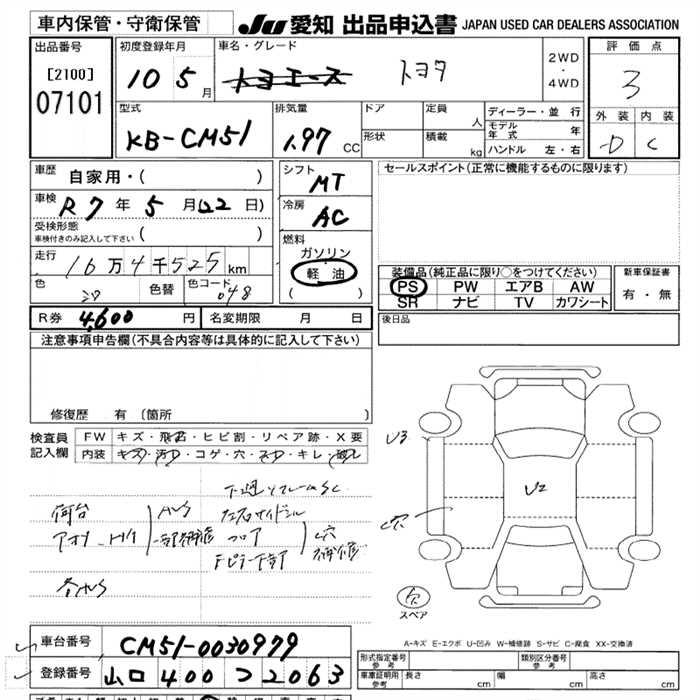 車内保管・守衛保管
JU 愛知 出品申込書 JAPAN USED CAR DEALERS ASSOCIATION
出品番号
[2100]
07101
初度登録年月
10 5 月
車名・グレード
トヨエース トヨタ
2WD
・
4WD
評価点
3
型式
KB-CM51
排気量
1.97 CC
ドア
形状
定員 人
積載 kg
ディーラー・並行
モデル年式 年
ハンドル 左・右
外装 内装
D C
車歴
自家用・( )
車検
R 7 年 5 月(22日)
受検形態
車検付きのみ記入して下さい ( )
走行
16万4千525km
色
色替
色コード
048
シフト
MT
冷房
AC
燃料
ガソリン
軽油
( )
セールスポイント(正常に機能するものに限ります)
装備品(純正品に限り○をつけてください)
PS PW エアB AW
SR ナビ TV カワシート
新車保証書
有・無
後日品
R券 4,600 円
名変期限 月 日
注意事項申告欄(不具合内容等は具体的に記入して下さい)
修復歴 有 (箇所
検査員
記入欄
FW キズ・飛石・ヒビ割・リペア跡・X要
内装 キズ・汚れ・コゲ・穴・スレ・キレ・破レ
下廻りフレームSC
荷台
アオリ
AUS
一部補修
左右サイドシル
フロア
Fピラー下部
穴
補修
各AUS
U3
U2
穴
スペア
A-キズ E-エクボ U-凹み W-補修跡 S-サビ C-腐食 XX-交換済
車台番号
CM51-0030979
登録番号
山口 400 つ 2063
形式指定番号
参考
類別区分番号
参考
車庫証明用
参考
長さ cm
幅 cm
高さ cm